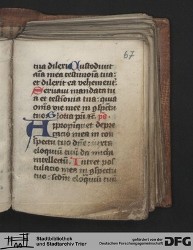 67
tua dilexi Custodiuit
aīa mea testimoīa tua:
et dilexit ea vehementer
Seruaui mandata tu
a et testīonia tua: quia
oēs vie mee in ɔspectu
tuo Gloria pr̄i
Appropīquet depre
catio mea in cōn
spectu tuo dn̄e: iuxta
eloquiū tuū da michi
intellectū Intret pos
tulatio mea in ɔspectu
tuo: scd̄m eloquiū tuū
Stadtbibliothek
Stadtarchiv Trier
gefördert von der
Deutschen Forschungsgemeinschaft